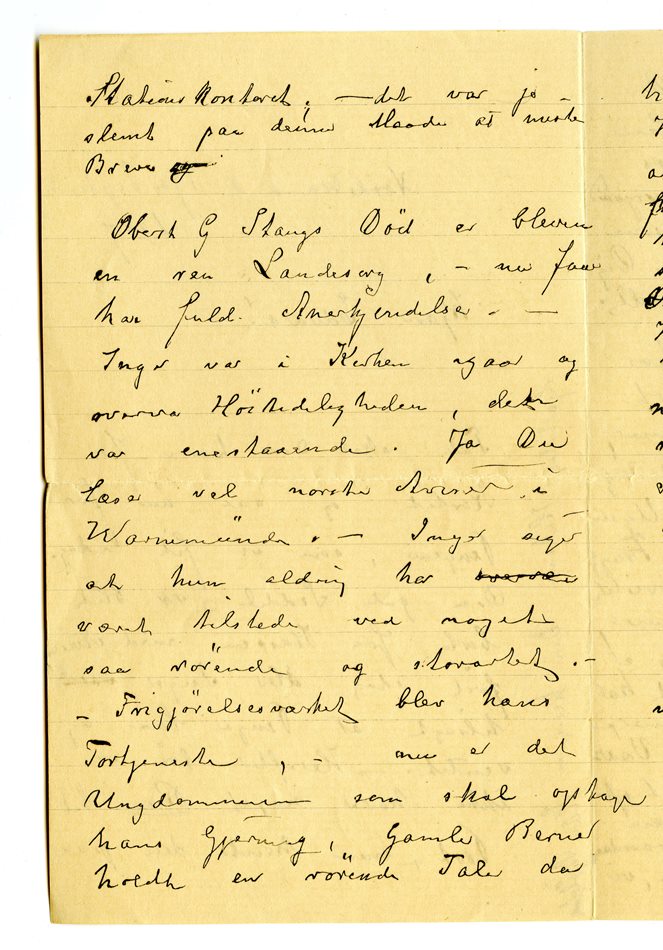 Stationskontoret, – det var jo
slemt paa denne Maade at miste
Breve
Oberst G Stangs Död er bleven
en ren Landesorg, – nu faar
har fuld Anerkjendelse. –
Inger var i Kirken igaar og
overvar Höitideligheden, det
var enestaaende. Ja Du
læser vel norske Aviser i
Warnemünde. – Inger siger
at hun aldrig har
været tilstede ved noget
saa rörende og storartet. –
– Frigjörelsesværket blev hans
Fortjeneste, – nu er det
Ungdommen som skal optage
hans Gjerning, Gamle Berner
holdt en rörende Tale da